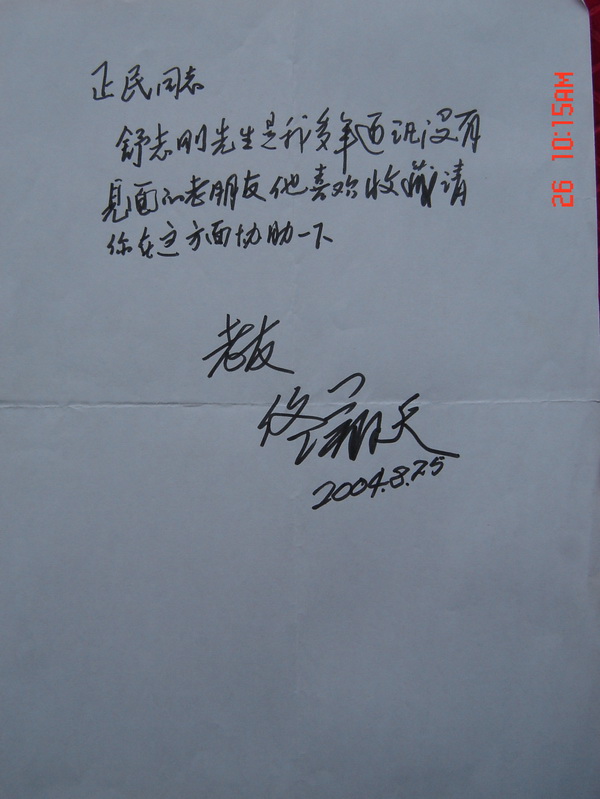 正民同志
舒志刚先生是我多年通讯没有
见面的老朋友他喜欢收藏请
你在这方面协助一下
老友
佟翔天
2004.8.25
26 10:15AM